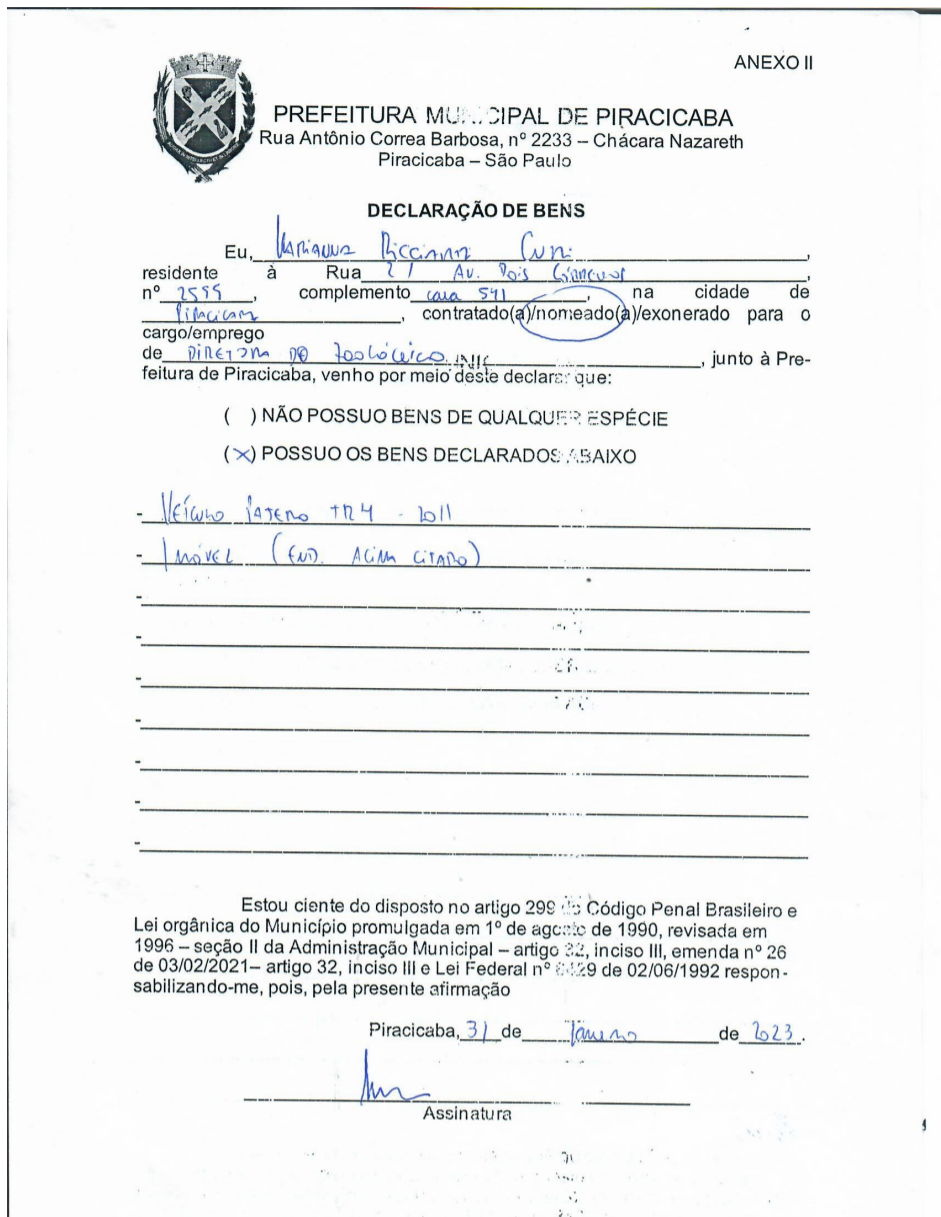 ANEXO II
PREFEITURA MUNICIPAL DE PIRACICABA
Rua Antônio Correa Barbosa, nº 2233 – Chácara Nazareth
Piracicaba – São Paulo
DECLARAÇÃO DE BENS
Eu, ,
residente à Rua Av. Dois Córregos ,
nº , complemento casa 541 , na cidade de
Piracicaba , contratado(a)/nomeado(a)/exonerado para o
cargo/emprego
de DIRETORA DO ZOOLÓGICO , junto à Pre-
feitura de Piracicaba, venho por meio deste declarar que:
( ) NÃO POSSUO BENS DE QUALQUER ESPÉCIE
(X) POSSUO OS BENS DECLARADOS ABAIXO
- VEÍCULO PAJERO TR4 - 2011
- IMÓVEL (END. ACIMA CITADO)
-
-
-
-
-
-
-
Estou ciente do disposto no artigo 299 do Código Penal Brasileiro e
Lei orgânica do Município promulgada em 1º de agosto de 1990, revisada em
1996 – seção II da Administração Municipal – artigo 32, inciso III, emenda nº 26
de 03/02/2021– artigo 32, inciso III e Lei Federal nº 8429 de 02/06/1992 respon-
sabilizando-me, pois, pela presente afirmação
Piracicaba, 31 de Janeiro de 2023.
Assinatura